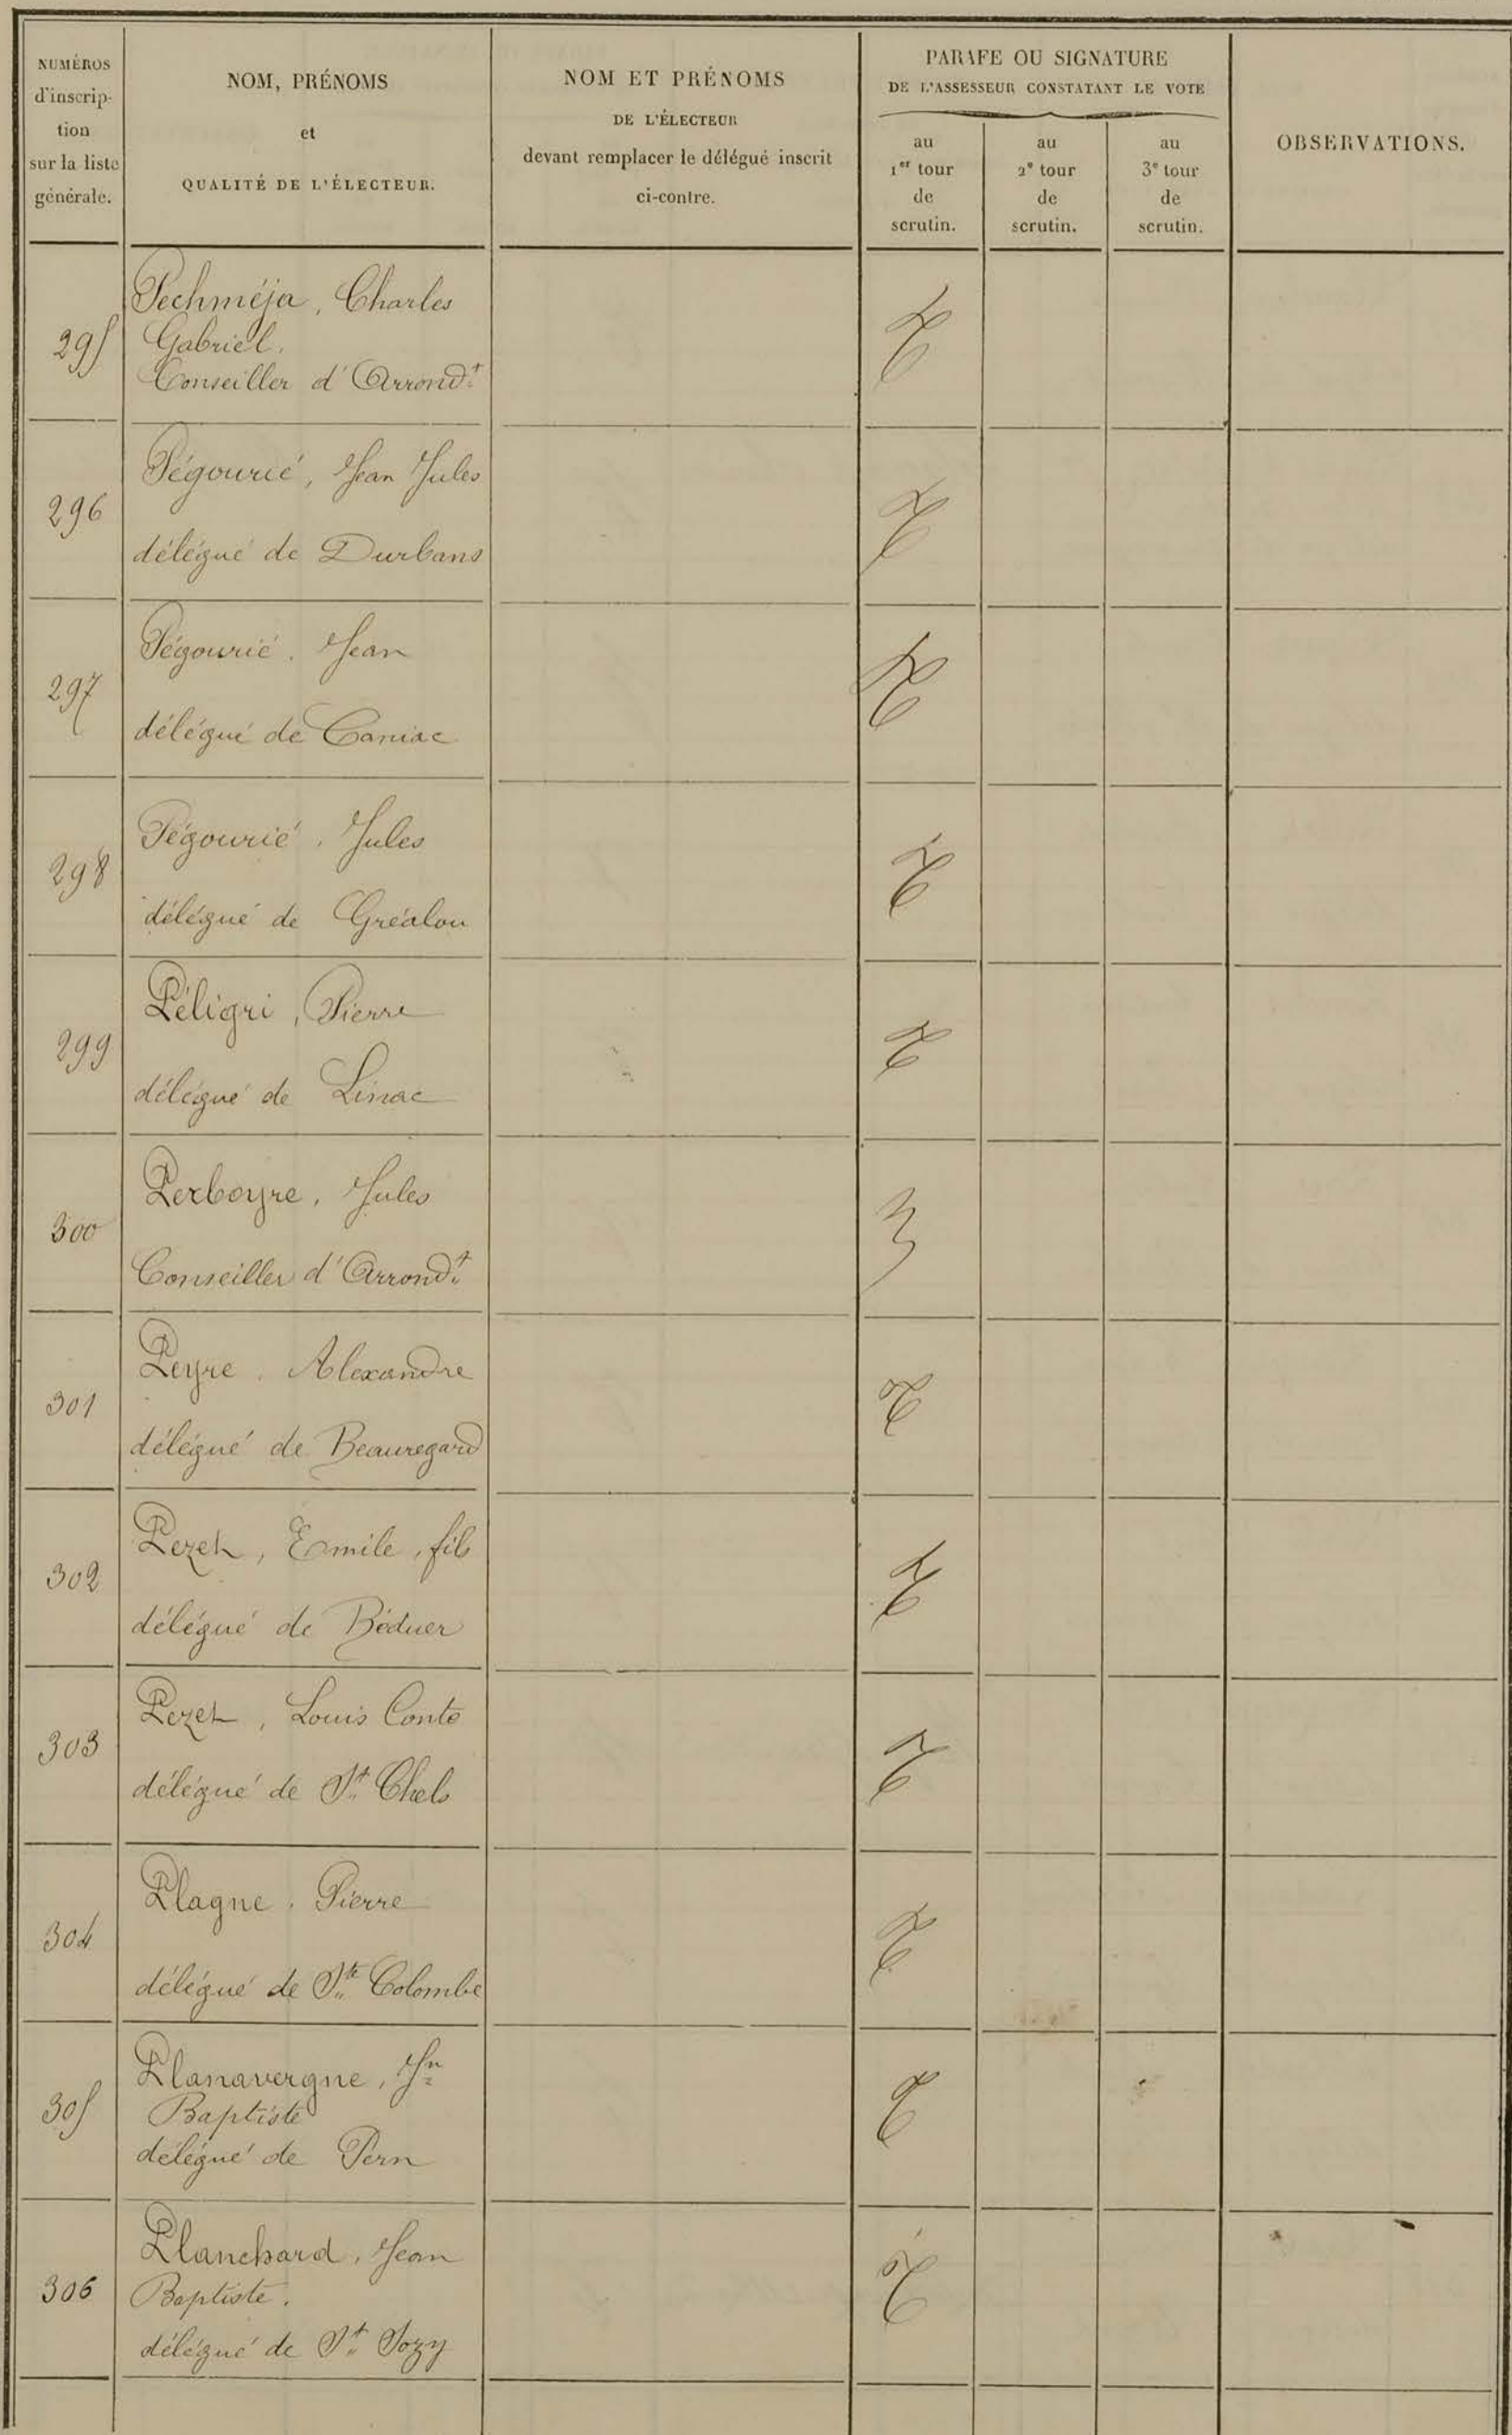 NUMÉROS
d'inscrip-
tion
sur la liste
générale.
NOM, PRÉNOMS
et
QUALITÉ DE L'ÉLECTEUR.
NOM ET PRÉNOMS
DE L'ÉLECTEUR
devant remplacer le délégué inscrit
ci-contre.
PARAFE OU SIGNATURE
DE L'ASSESSEUR CONSTATANT LE VOTE
au
1er tour
de
scrutin.
au
2e tour
de
scrutin.
au
3e tour
de
scrutin.
OBSERVATIONS.
295
Pechméja, Charles
Gabriel.
Conseiller d'Arrondt
296
Pégourié, Jean Jules
délégué de Durbans
297
Pégourié. Jean
délégué de Caniac
298
Pégourié. Jules
délégué de Gréalou
299
Péligri, Pierre
délégué de Linac
300
Perboyre, Jules
Conseiller d'Arrondt
301
Peyre. Alexandre
délégué de Beauregard
302
Pezet, Emile, fils
délégué de Béduer
303
Pezet, Louis Conte
délégué de St Chels
304
Plagne. Pierre
délégué de Ste Colombe
305
Planavergne, Jn
Baptiste
délégué de Pern
306
Planchard, Jean
Baptiste.
délégué de St Sozy